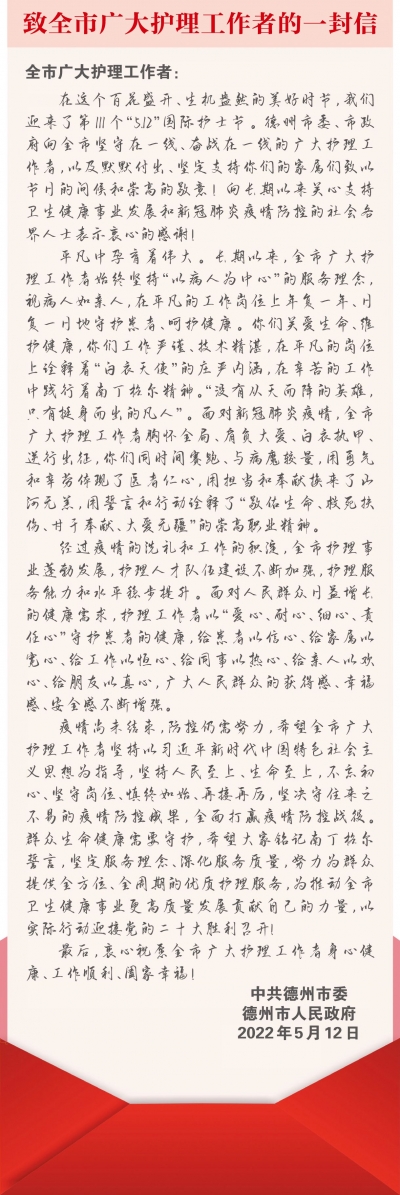 致全市广大护理工作者的一封信
全市广大护理工作者：
在这个百花盛开、生机盎然的美好时节，我们
迎来了第111个“5.12”国际护士节。德州市委、市政
府向全市坚守在一线、奋战在一线的广大护理工
作者，以及默默付出、坚定支持你们的家属们致以
节日的问候和崇高的敬意！向长期以来关心支持
卫生健康事业发展和新冠肺炎疫情防控的社会各
界人士表示衷心的感谢！
平凡中孕育着伟大。长期以来，全市广大护
理工作者始终坚持“以病人为中心”的服务理念，
视病人如亲人，在平凡的工作岗位上年复一年、日
复一日地守护患者、呵护健康。你们关爱生命、维
护健康，你们工作严谨、技术精湛，在平凡的岗位
上诠释着“白衣天使”的庄严内涵，在辛苦的工作
中践行着南丁格尔精神。“没有从天而降的英雄，
只有挺身而出的凡人”。面对新冠肺炎疫情，全市
广大护理工作者胸怀全局、肩负大爱、白衣执甲、
逆行出征，你们同时间赛跑、与病魔较量，用勇气
和辛劳体现了医者仁心，用担当和奉献换来了山
河无恙，用誓言和行动诠释了“敬佑生命、救死扶
伤、甘于奉献、大爱无疆”的崇高职业精神。
经过疫情的洗礼和工作的积淀，全市护理事
业蓬勃发展，护理人才队伍建设不断加强，护理服
务能力和水平稳步提升。面对人民群众日益增长
的健康需求，护理工作者以“爱心、耐心、细心、责
任心”守护患者的健康，给患者以信心、给家属以
宽心、给工作以恒心、给同事以热心、给亲人以欢
心、给朋友以真心，广大人民群众的获得感、幸福
感、安全感不断增强。
疫情尚未结束，防控仍需努力，希望全市广大
护理工作者坚持以习近平新时代中国特色社会主
义思想为指导，坚持人民至上、生命至上，不忘初
心、坚守岗位、慎终如始、再接再厉，坚决守住来之
不易的疫情防控成果，全面打赢疫情防控战役。
群众生命健康需要守护，希望大家铭记南丁格尔
誓言，坚定服务理念、深化服务质量，努力为群众
提供全方位、全周期的优质护理服务，为推动全市
卫生健康事业更高质量发展贡献自己的力量，以
实际行动迎接党的二十大胜利召开！
最后，衷心祝愿全市广大护理工作者身心健
康、工作顺利、阖家幸福！
中共德州市委
德州市人民政府
2022年5月12日